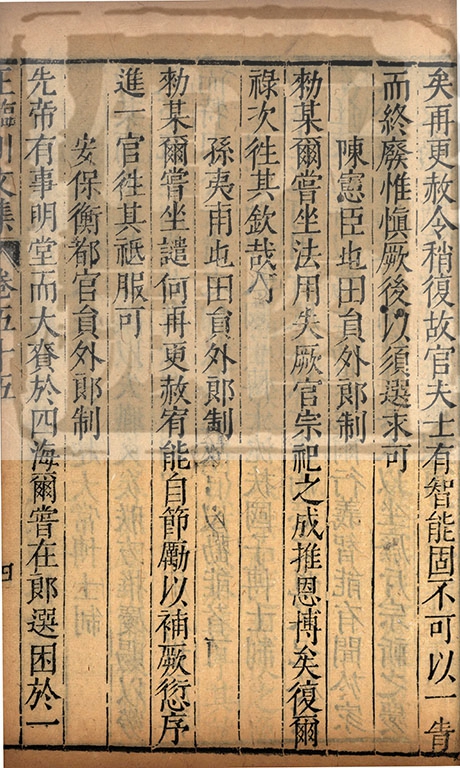 矣再更赦令稍復故官夫士有智能固不可以一眚
而終廢惟愼厥後以須選求可
陳憲臣屯田員外郎制
勑某爾嘗坐法用失厥官宗祀之成推恩博矣復爾
祿次徃其欽哉可
孫夷甫屯田員外郎制
勑某爾嘗坐譴何再更赦宥能自節勵以補厥愆序
進一官徃其祗服可
安保衡都官員外郎制
先帝有事明堂而大賚於四海爾嘗在郎選困於一
王臨川文集 卷五十五 四